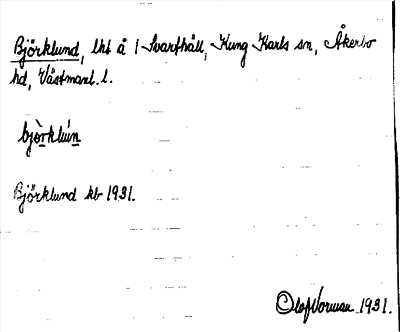 Björklund, lht å 1 Svarthäll, Kung Karls sn, Åkerbo
hd, Västmanl. l.
bjò̱rkluǹ
Björklund kb 1931.
Olof Norman 1931.